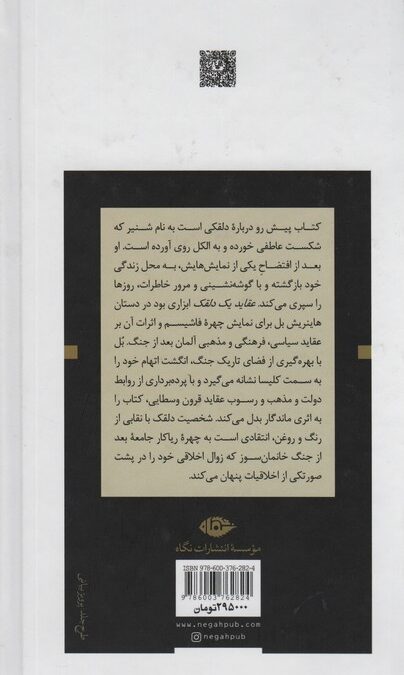 کتاب پیش رو دربارهٔ دلقکی است به نام شنیر که
شکست عاطفی خورده و به الکل روی آورده است. او
بعد از افتضاحِ یکی از نمایش‌هایش، به محل زندگی
خود بازگشته و با گوشه‌نشینی و مرور خاطرات، روزها
را سپری می‌کند. عقاید یک دلقک ابزاری بود در دستان
هاینریش بل برای نمایش چهرهٔ فاشیسم و اثرات آن بر
عقاید سیاسی، فرهنگی و مذهبی آلمان بعد از جنگ. بُل
با بهره‌گیری از فضای تاریک جنگ، انگشت اتهام خود را
به سمت کلیسا نشانه می‌گیرد و با پرده‌برداری از روابط
دولت و مذهب و رسوب عقاید قرون وسطایی، کتاب را
به اثری ماندگار بدل می‌کند. شخصیت دلقک با نقابی از
رنگ و روغن، انتقادی است به چهرهٔ ریاکار جامعهٔ بعد
از جنگ خانمان‌سوز که زوال اخلاقی خود را در پشت
صورتکی از اخلاقیات پنهان می‌کند.
مؤسسهٔ انتشارات نگاه
ISBN 978-600-376-282-4
9 786003 762824
۲۹۵۰۰۰تومان
www.negahpub.com
negahpub
طرح جلد: پرویز بیانی